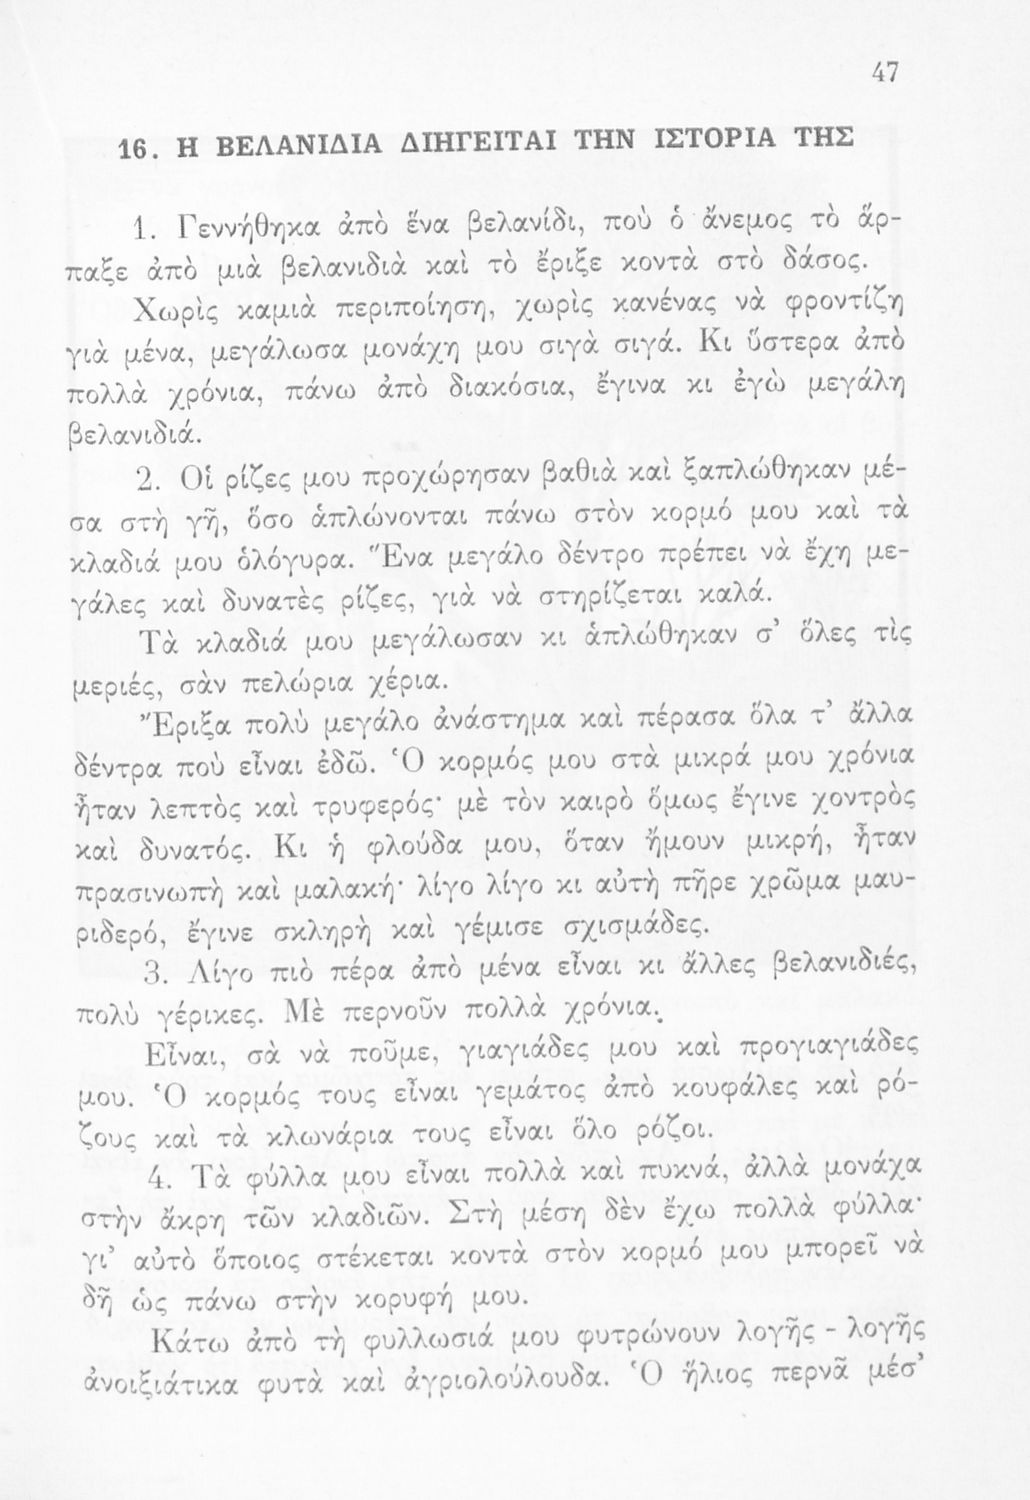 47
16. Η ΒΕΛΑΝΙΔΙΑ ΔΙΗΓΕΙΤΑΙ ΤΗΝ ΙΣΤΟΡΙΑ ΤΗΣ
1. Γεννήθηκα ἀπὸ ἕνα βελανίδι, ποὺ ὁ ἄνεμος τὸ ἅρ-
παξε ἀπὸ μιὰ βελανιδιὰ καὶ τὸ ἔριξε κοντὰ στὸ δάσος.
Χωρὶς καμιὰ περιποίηση, χωρὶς κανένας νὰ φροντίζη
γιὰ μένα, μεγάλωσα μονάχη μου σιγὰ σιγά. Κι ὕστερα ἀπὸ
πολλὰ χρόνια, πάνω ἀπὸ διακόσια, ἔγινα κι ἐγὼ μεγάλη
βελανιδιά.
2. Οἱ ρίζες μου προχώρησαν βαθιὰ καὶ ξαπλώθηκαν μέ-
σα στὴ γῆ, ὅσο ἁπλώνονται πάνω στὸν κορμό μου καὶ τὰ
κλαδιά μου ὁλόγυρα. Ἕνα μεγάλο δέντρο πρέπει νὰ ἔχη με-
γάλες καὶ δυνατὲς ρίζες, γιὰ νὰ στηρίζεται καλά.
Τὰ κλαδιά μου μεγάλωσαν κι ἁπλώθηκαν σ’ ὅλες τὶς
μεριές, σὰν πελώρια χέρια.
Ἔριξα πολὺ μεγάλο ἀνάστημα καὶ πέρασα ὅλα τ’ ἄλλα
δέντρα ποὺ εἶναι ἐδῶ. Ὁ κορμός μου στὰ μικρά μου χρόνια
ἦταν λεπτὸς καὶ τρυφερός· μὲ τὸν καιρὸ ὅμως ἔγινε χοντρὸς
καὶ δυνατός. Κι ἡ φλούδα μου, ὅταν ἤμουν μικρή, ἦταν
πρασινωπὴ καὶ μαλακή· λίγο λίγο κι αὐτὴ πῆρε χρῶμα μαυ-
ριδερό, ἔγινε σκληρὴ καὶ γέμισε σχισμάδες.
3. Λίγο πιὸ πέρα ἀπὸ μένα εἶναι κι ἄλλες βελανιδιές,
πολὺ γέρικες. Μὲ περνοῦν πολλὰ χρόνια.
Εἶναι, σὰ νὰ ποῦμε, γιαγιάδες μου καὶ προγιαγιάδες
μου. Ὁ κορμός τους εἶναι γεμάτος ἀπὸ κουφάλες καὶ ρό-
ζους καὶ τὰ κλωνάρια τους εἶναι ὅλο ρόζοι.
4. Τὰ φύλλα μου εἶναι πολλὰ καὶ πυκνά, ἀλλὰ μονάχα
στὴν ἄκρη τῶν κλαδιῶν. Στὴ μέση δὲν ἔχω πολλὰ φύλλα·
γι’ αὐτὸ ὅποιος στέκεται κοντὰ στὸν κορμό μου μπορεῖ νὰ
δῆ ὡς πάνω στὴν κορυφή μου.
Κάτω ἀπὸ τὴ φυλλωσιά μου φυτρώνουν λογῆς - λογῆς
ἀνοιξιάτικα φυτὰ καὶ ἀγριολούλουδα. Ὁ ἥλιος περνᾶ μέσ’